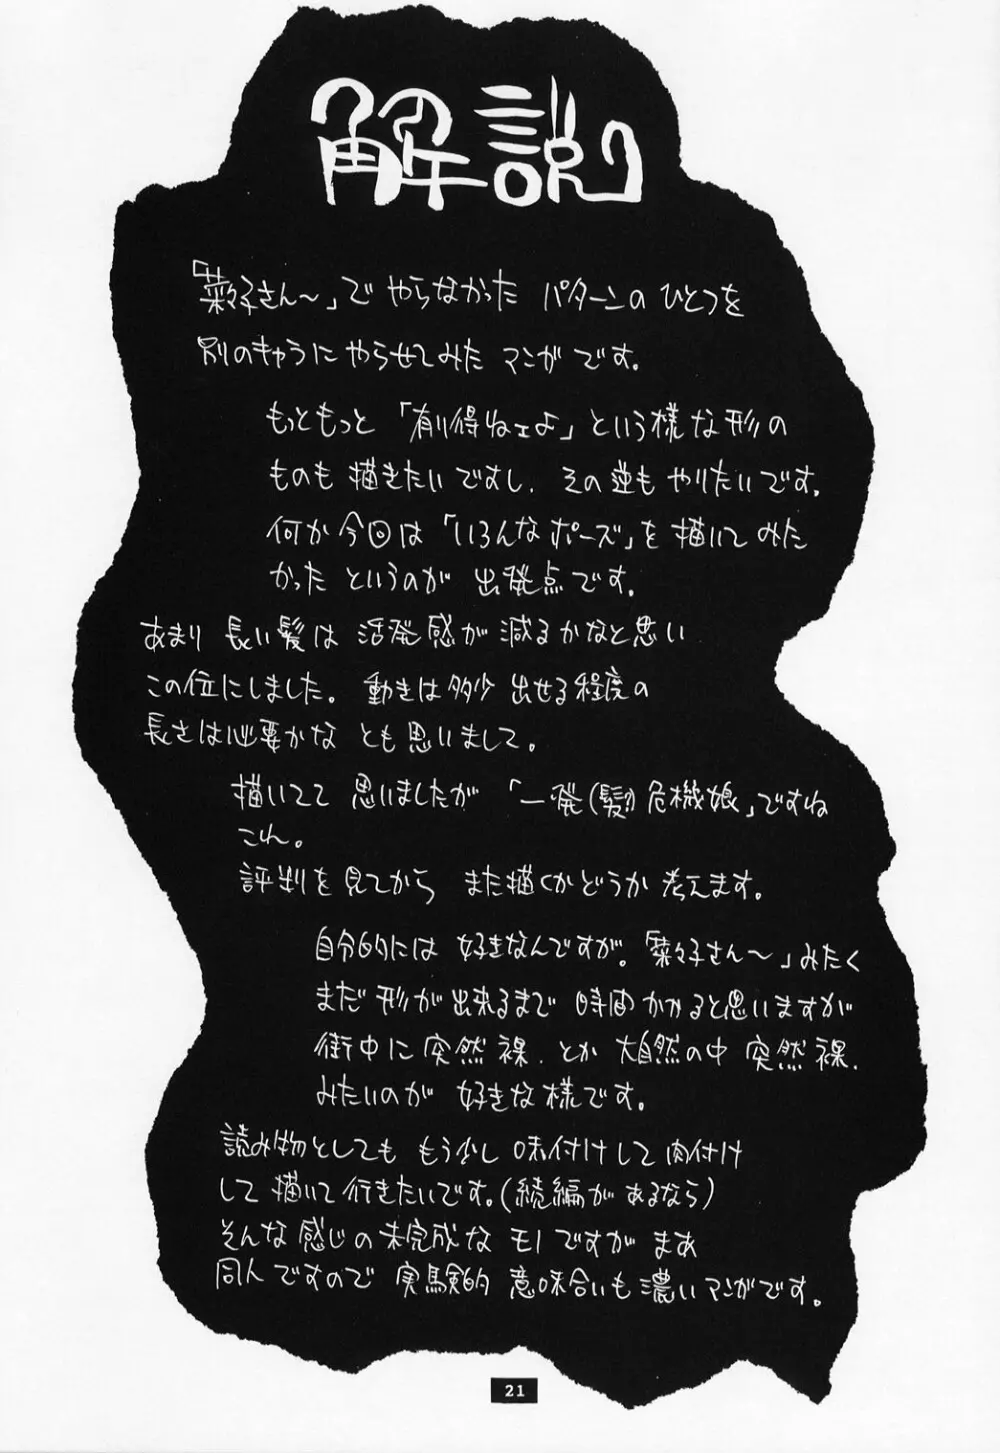 解説
「菜々子さん〜」で やらなかった パターンの ひとつを
別のキャラに やらせてみた マンガです。
もっともっと 「有り得ねェよ」という様な形の
ものも 描きたいですし、その逆も やりたいです。
何か今回は「いろんなポーズ」を 描いて みた
かった というのが 出発点です。
あまり 長い髪は 活発感が 減るかなと思い
この位にしました。動きは多少 出せる程度の
長さは必要かな とも 思いまして。
描いてて 思いましたが 「一発(髪)危機娘」ですね
これ。
評判を 見てから また描くかどうか 考えます。
自分的には 好きなんですが。「菜々子さん〜」みたく
まだ 形が 出来るまで 時間 かかると思いますが
街中に 突然 裸、とか 大自然の中 突然 裸、
みたいのが 好きな様です。
読み物としても もう少し 味付けして 肉付け
して 描いて 行きたいです。(続編が あるなら)
そんな 感じの 未完成な モノですが まあ
同人ですので 実験的 意味合いも 濃い マンガです。
21